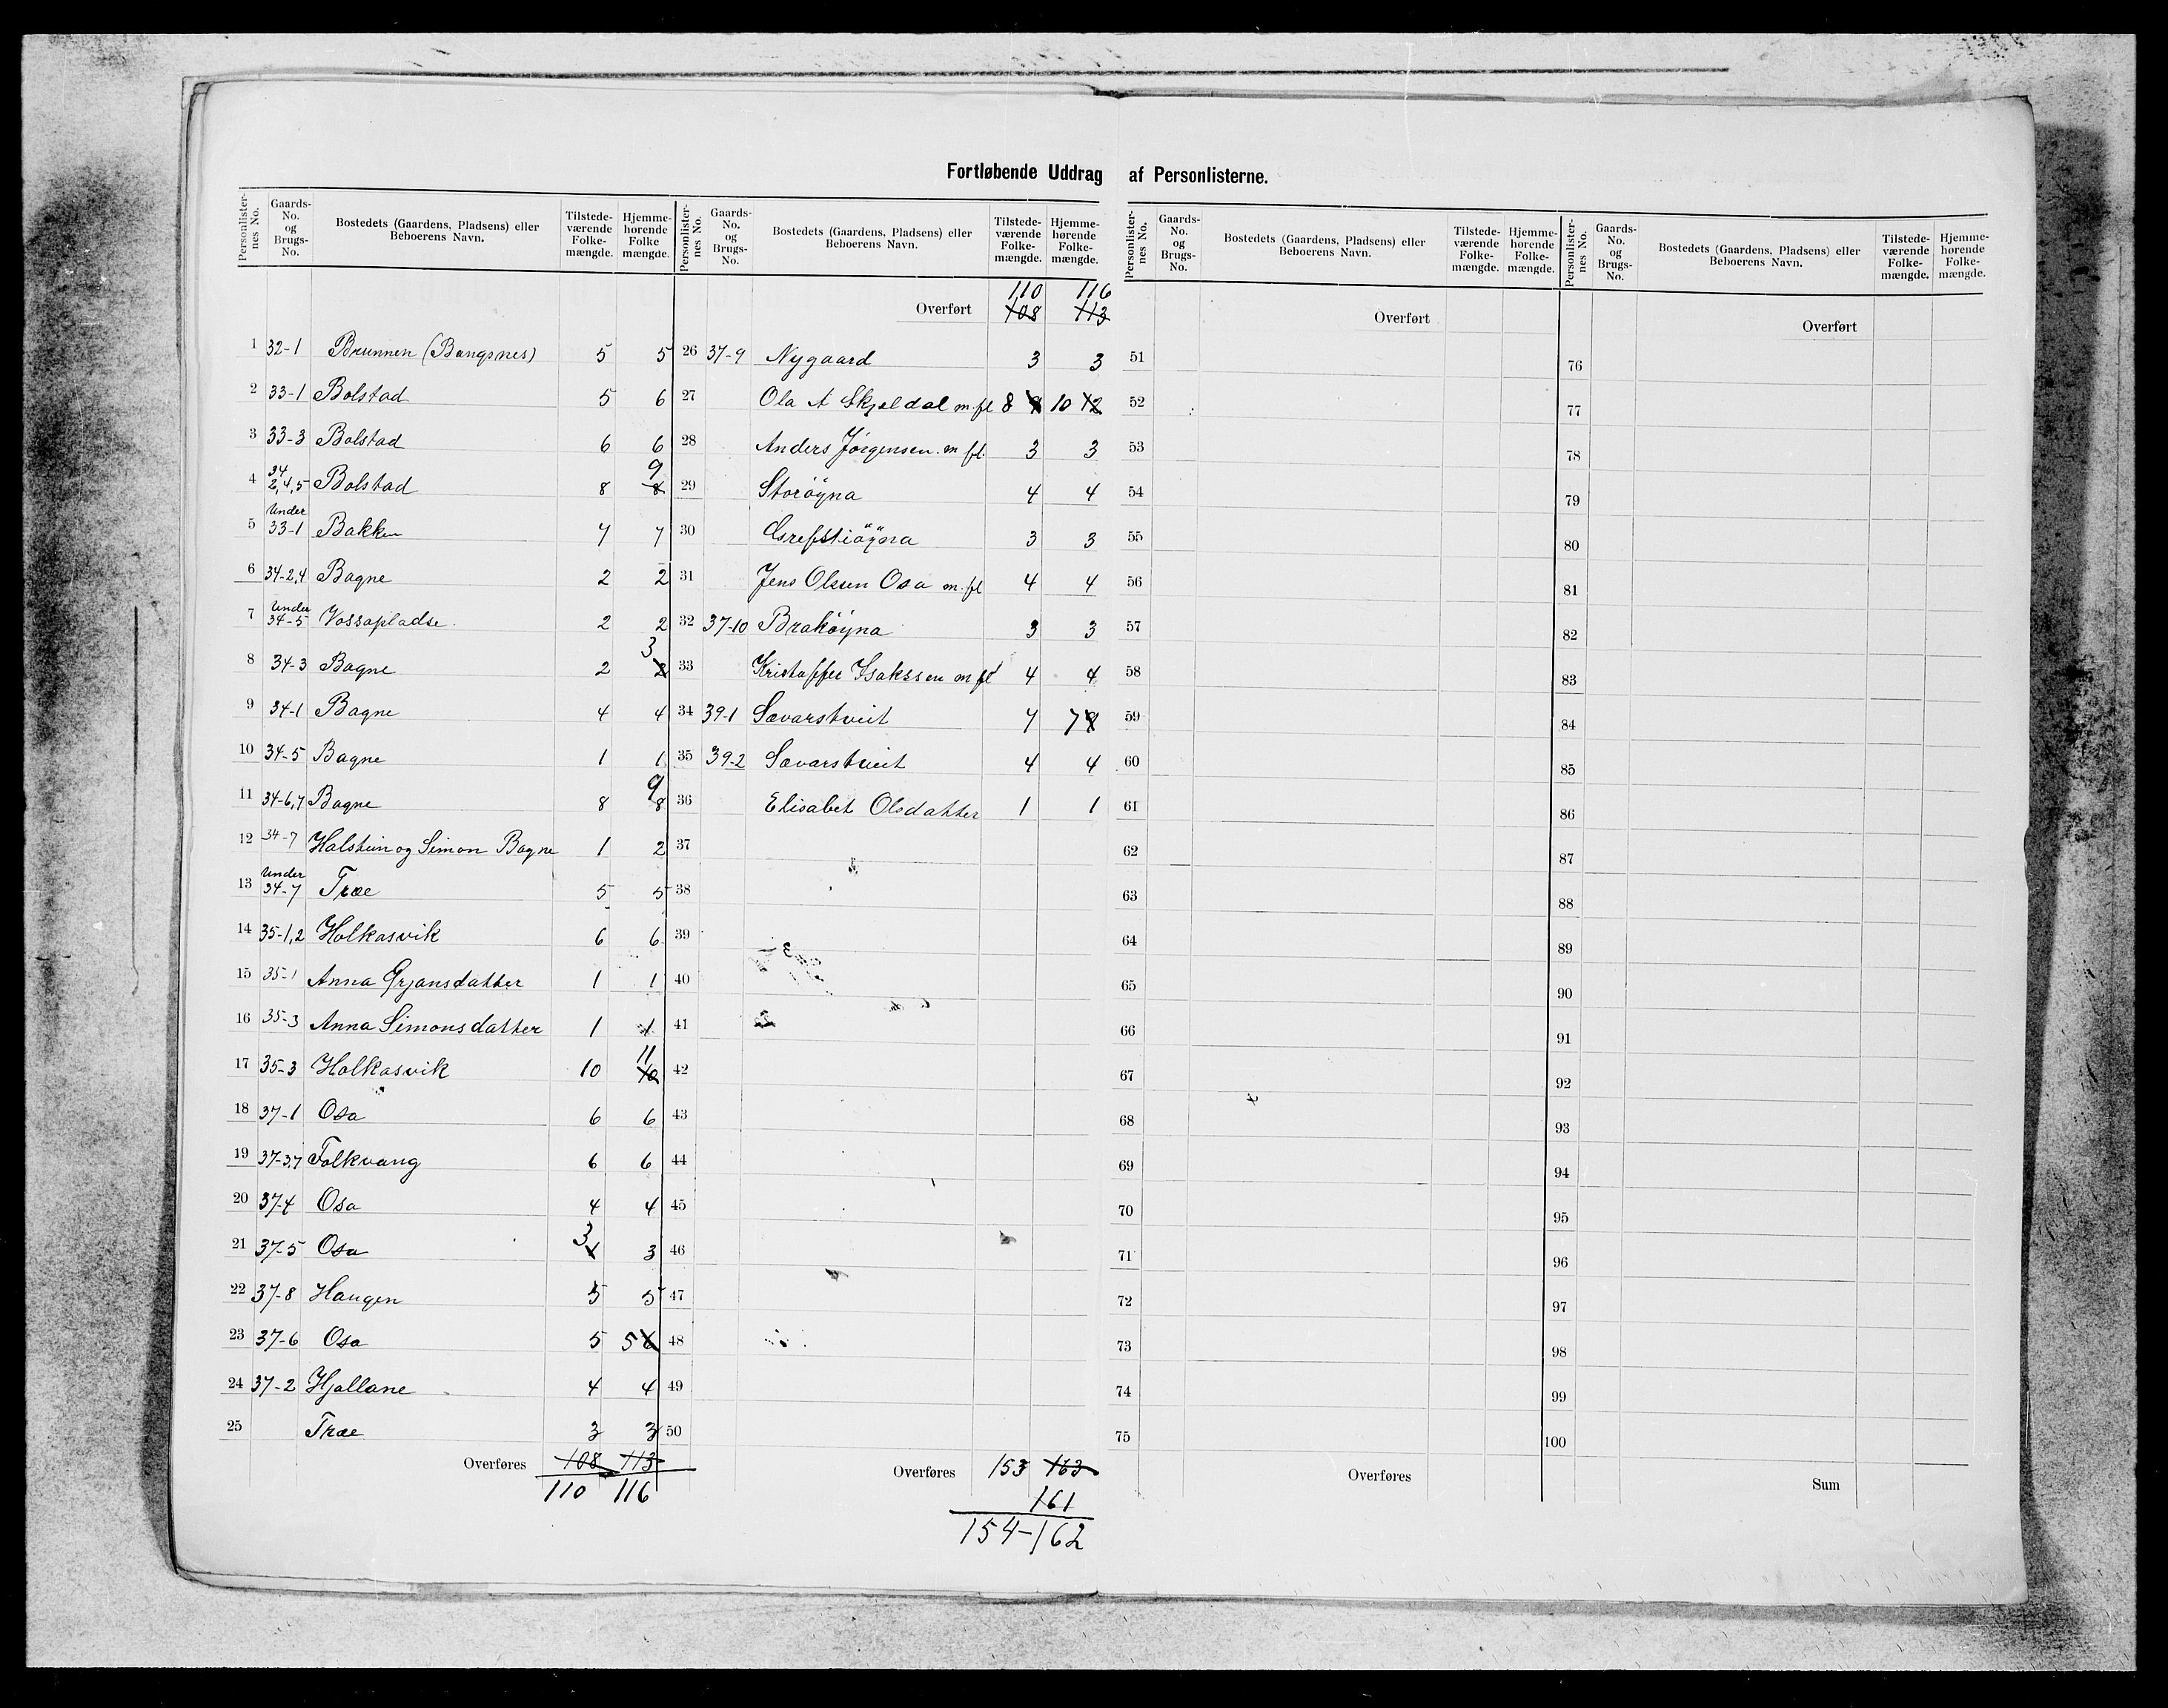 Fortløbende Uddrag af Personlisterne.
Personlister-nes No. | Gaards-No. og Brugs-No. | Bostedets (Gaardens, Pladsens) eller Beboerens Navn. | Tilstede-værende Folke-mængde. | Hjemme-hørende Folke mængde.
1 32-1 Brunnen (Bangsnes) 5 5
2 33-1 Bolstad 5 6
3 33-3 Bolstad 6 6
4 34 2,4,5 Bolstad 8 8 9
5 Under 33-1 Bakken 7 7
6 34-2,4 Bagne 2 2
7 Under 34-5 Vossapladse 2 2
8 34-3 Bagne 2 2 3
9 34-1 Bagne 4 4
10 34-5 Bagne 1 1
11 34-6,7 Bagne 8 8 9
12 34-7 Halstein og Simon Bagne 1 2
13 Under 34-7 Træe 5 5
14 35-1,2 Holkasvik 6 6
15 35-1 Anna Ørjansdatter 1 1
16 35-3 Anna Simonsdatter 1 1
17 35-3 Holkasvik 10 10 11
18 37-1 Osa 6 6
19 37-3,7 Folkvang 6 6
20 37-4 Osa 4 4
21 37-5 Osa 3 3
22 37-8 Haugen 5 5
23 37-6 Osa 5 5 6
24 37-2 Hjallane 4 4
25 Træe 3 3
Overføres 108 113
110 116
Personlister-nes No. | Gaards-No. og Brugs-No. | Bostedets (Gaardens, Pladsens) eller Beboerens Navn. | Tilstede-værende Folke-mængde. | Hjemme-hørende Folke-mængde.
110 116
Overført 108 113
26 37-9 Nygaard 3 3
27 Ola A Skjeldal m. fl 8 9 10 12
28 Anders Jørgensen m fl. 3 3
29 Storöyna 4 4
30 Grefstiöyna 3 3
31 Jens Olsen Osa m. fl 4 4
32 37-10 Braköyna 3 3
33 Kristoffer Isakssen m fl 4 4
34 39-1 Sævarstveit 7 7 8
35 39-2 Sævarstveit 4 4
36 Elisabet Olsdatter 1 1
37
38
39
40
41
42
43
44
45
46
47
48
49
50
Overføres 153 163
161
154-162
Personlister-nes No. | Gaards-No. og Brugs-No. | Bostedets (Gaardens, Pladsens) eller Beboerens Navn. | Tilstede-værende Folke-mængde. | Hjemme-hørende Folke-mængde.
Overført
51
52
53
54
55
56
57
58
59
60
61
62
63
64
65
66
67
68
69
70
71
72
73
74
75
Overføres
Personlister-nes No. | Gaards-No. og Brugs-No. | Bostedets (Gaardens, Pladsens) eller Beboerens Navn. | Tilstede-værende Folke-mængde. | Hjemme-hørende Folke-mængde.
Overført
76
77
78
79
80
81
82
83
84
85
86
87
88
89
90
91
92
93
94
95
96
97
98
99
100
Sum